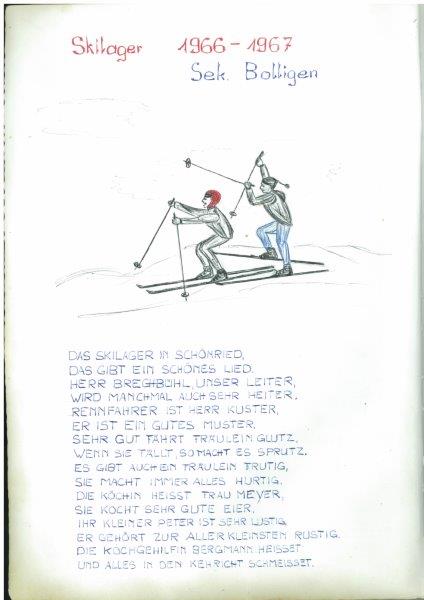 Skilager 1966-1967
Sek. Bolligen
DAS SKILAGER IN SCHÖNRIED,
DAS GIBT EIN SCHÖNES LIED.
HERR BRECHBÜHL, UNSER LEITER,
WIRD MANCHMAL AUCH SEHR HEITER,
RENNFAHRER IST HERR KUSTER,
ER IST EIN GUTES MUSTER,
SEHR GUT FÄHRT FRÄULEIN GLUTZ,
WENN SIE FÄLLT, SO MACHT ES SPRUTZ.
ES GIBT AUCH EIN FRÄULEIN TRUTIG,
SIE MACHT IMMER ALLES HURTIG.
DIE KÖCHIN HEISST FRAU MEYER,
SIE KOCHT SEHR GUTE EIER,
IHR KLEINER PETER IST SEHR LUSTIG,
ER GEHÖRT ZUR ALLERKLEINSTEN RUSTIG.
DIE KOCHGEHILFIN BERGMANN HEISSET
UND ALLES IN DEN KEHRICHT SCHMEISSET.